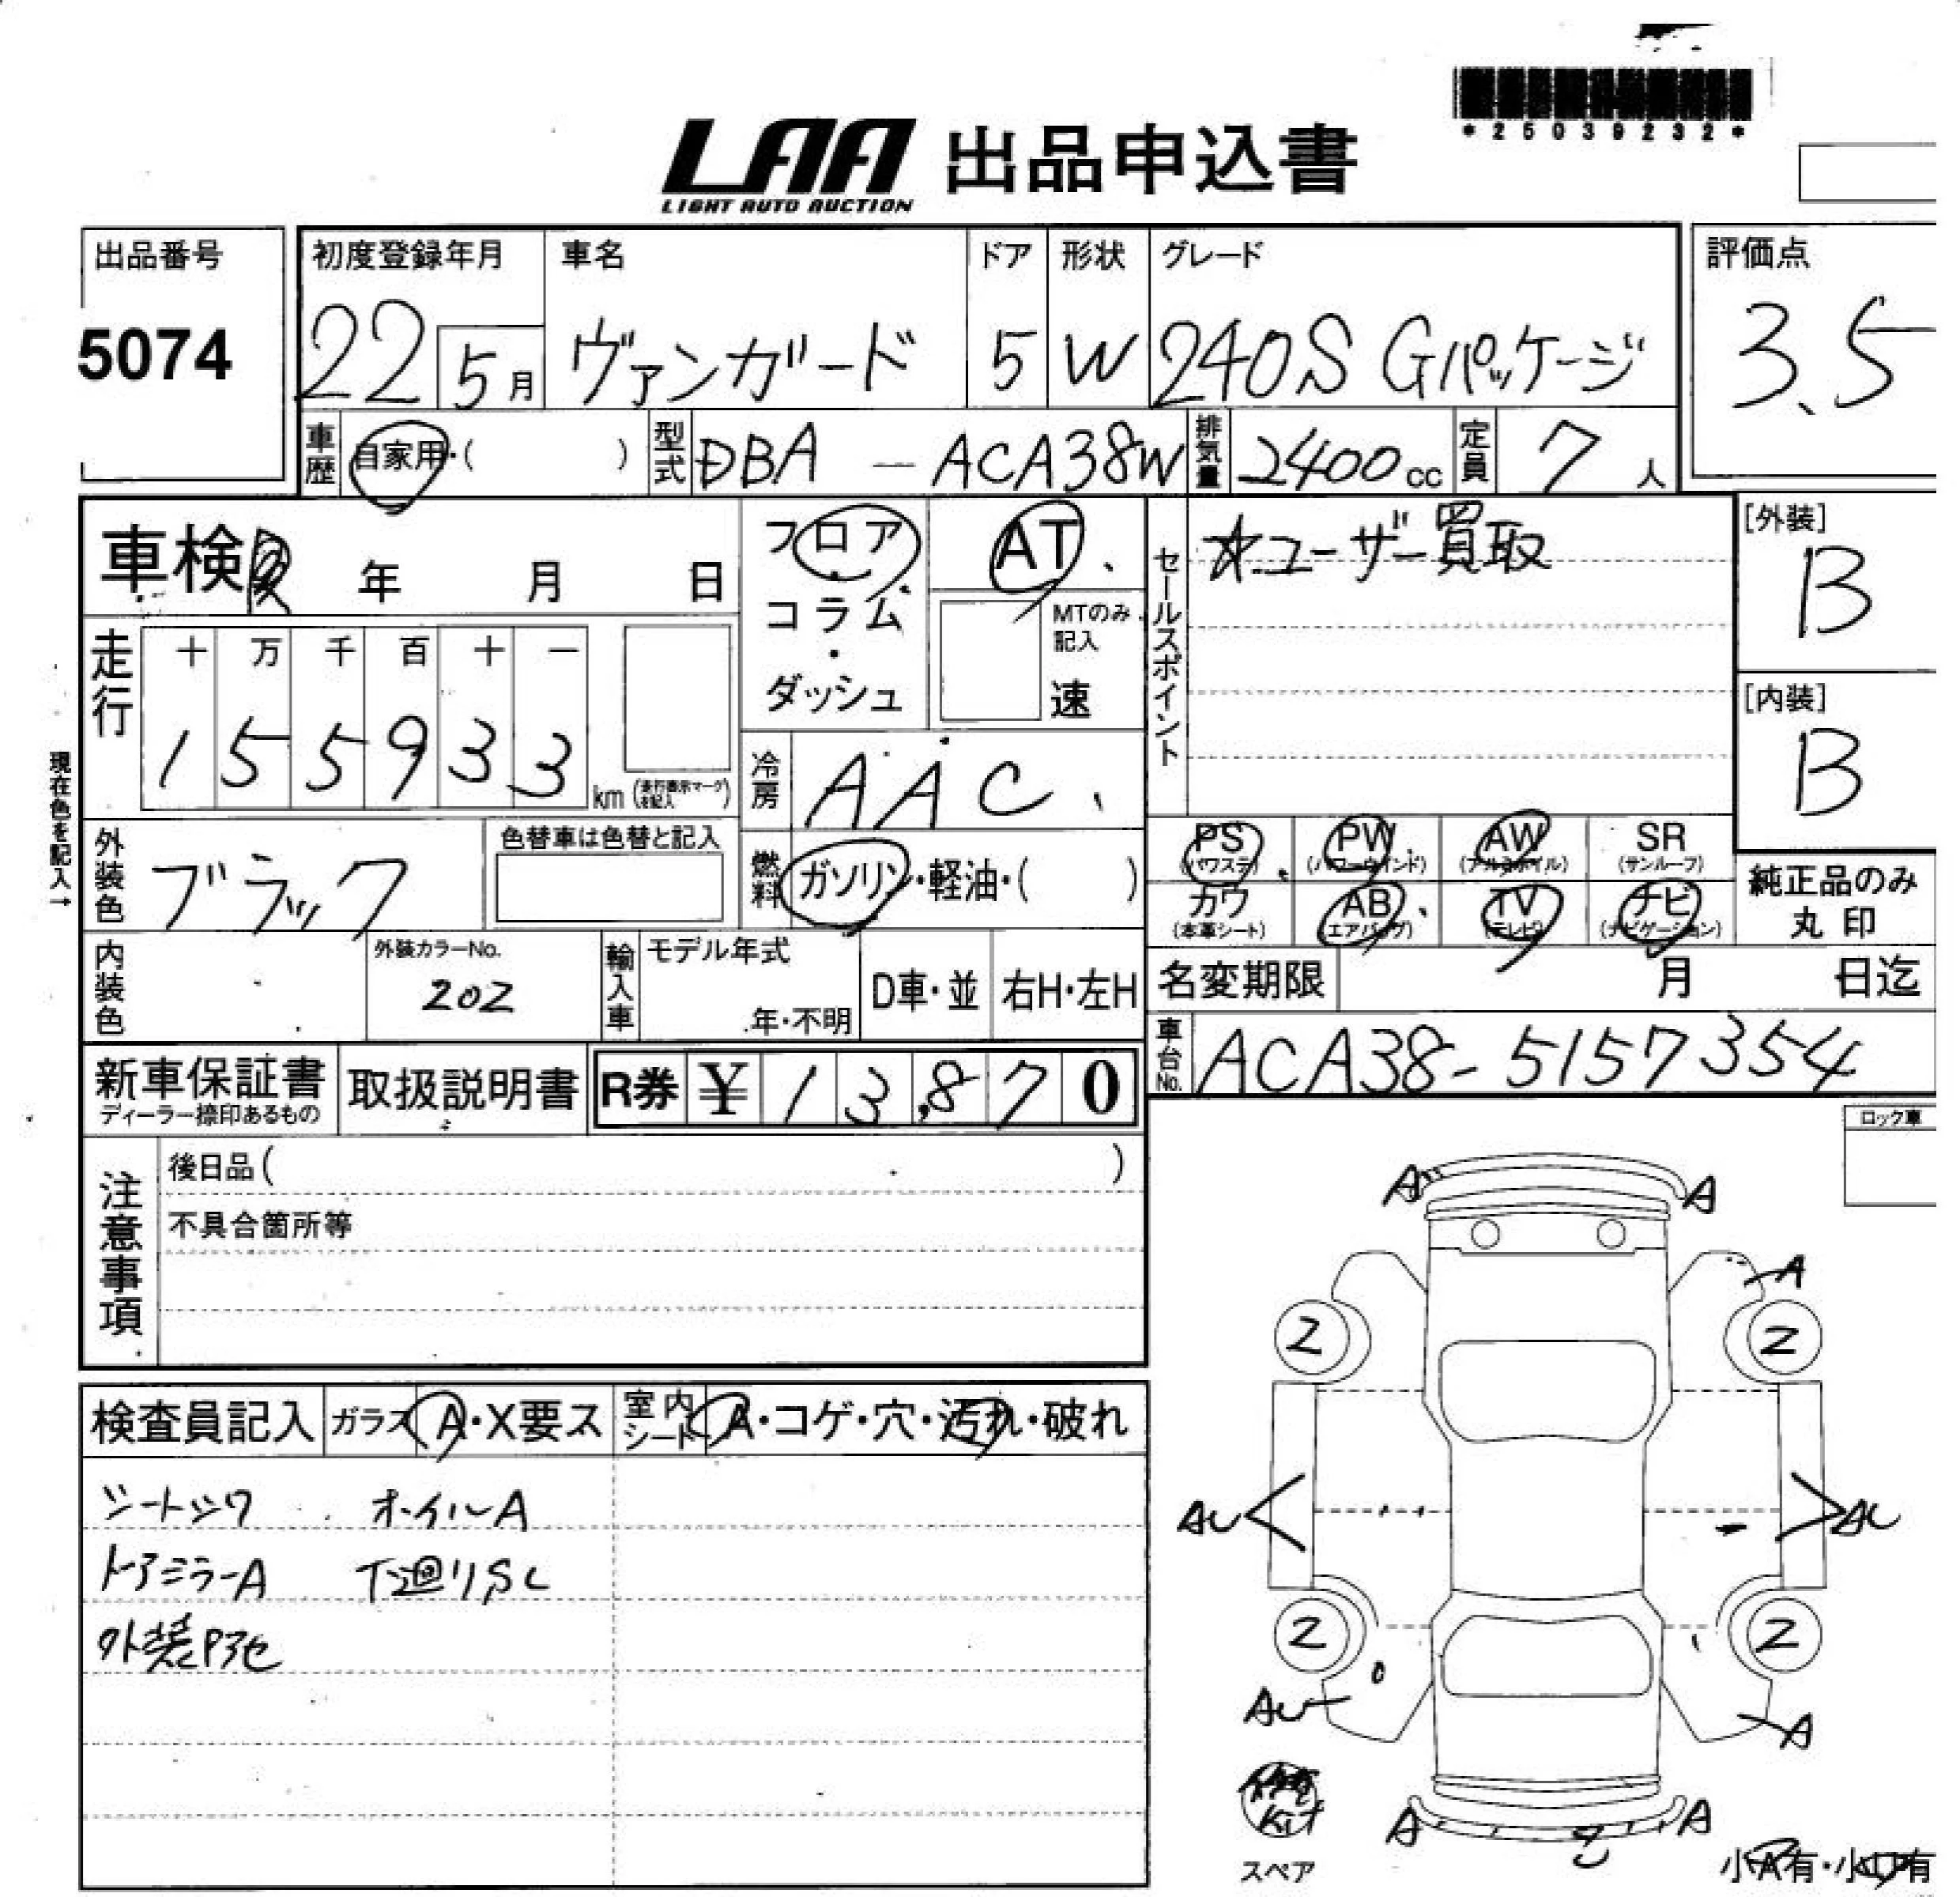 *25039232*
LAA 出品申込書
LIGHT AUTO AUCTION
出品番号
5074
初度登録年月
22 5月
車名
ヴァンガード
ドア
5
形状
W
グレード
240S Gパッケージ
評価点
3.5
車歴
自家用・( )
型式
DBA - ACA38W
排気量
2400cc
定員
7人
車検 年 月 日
フロア・コラム・ダッシュ
AT
MTのみ記入
速
セールスポイント
☆ユーザー買取
[外装]
B
[内装]
B
走行
十 万 千 百 十 一
1 5 5 9 3 3 km
(走行表示マークを記入)
冷房
AAC
現在色を記入→
外装色
ブラック
色替車は色替と記入
燃料
ガソリン・軽油・( )
PS (パワステ)
PW (パワーウインド)
AW (アルミホイル)
SR (サンルーフ)
カワ (本革シート)
AB (エアバッグ)
TV (テレビ)
ナビ (ナビゲーション)
純正品のみ
丸印
内装色
外装カラーNo.
202
輸入車
モデル年式
年・不明
D車・並
右H・左H
名変期限 月 日迄
車台No.
ACA38-5157354
新車保証書
ディーラー捺印あるもの
取扱説明書
R券 ¥ 13,870
ロック車
注意事項
後日品( )
不具合箇所等
検査員記入
ガラス A・X要ス
室内シート A・コゲ・穴・汚れ・破れ
シートシワ オイルA
ドアミラーA 下廻り,SL
A A
A
2 2
AU AU
2 2
AU A
Kit
A A
スペア
小A有・小U有